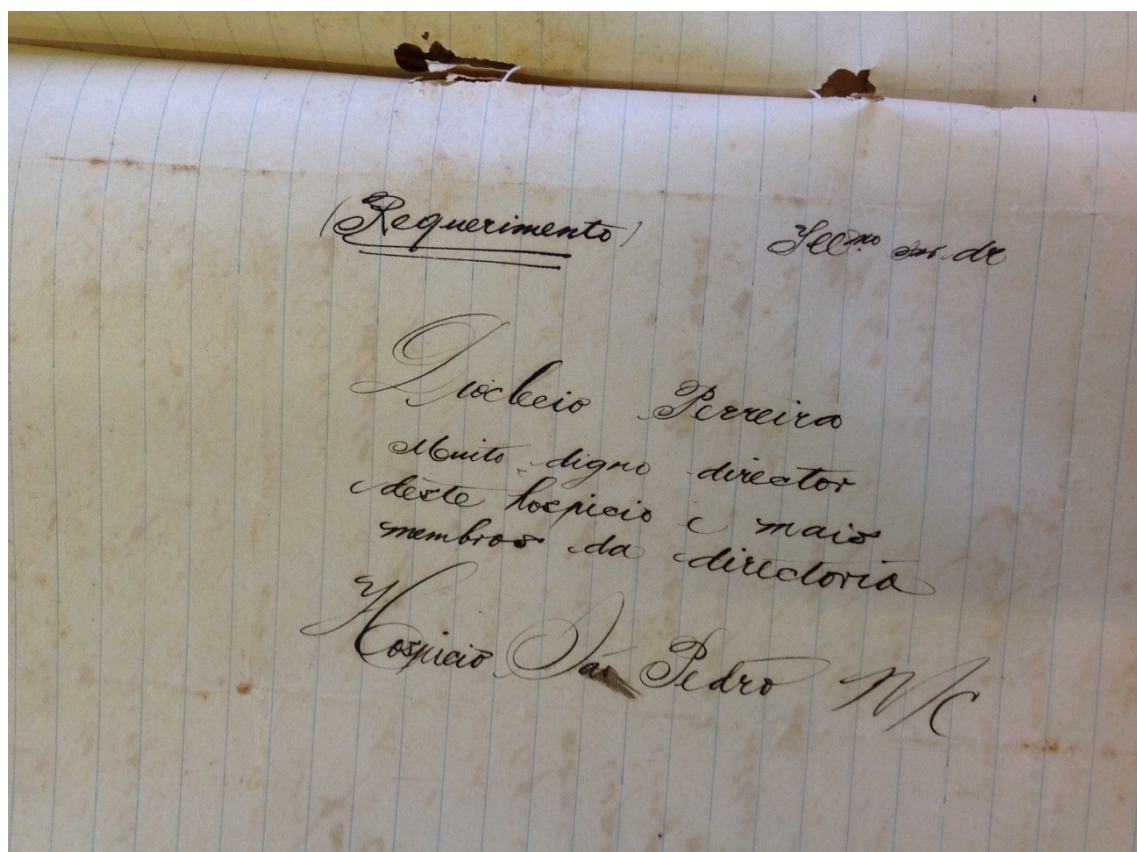 (Requerimento) Illmo snr. dr
Dioclecio Perreira
Muito digno director
deste hospicio e mais
membros da directoria
Hospicio São Pedro N/C